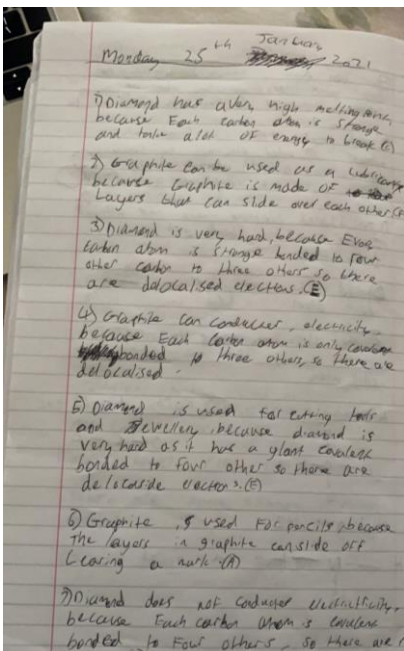 Monday 25th January 2021
1) Diamond has a very high melting point,
because Each carbon atom is stronge
and take alot OF energy to break (C)
2) Graphite can be used as a lubricant
because Graphite is made OF
Layers that can slide over each other
3) Diamond is very hard, because Every
carbon atom is stronge bonded to four
other carbon to three others so there
are delocalised electrons. (E)
4) Graphite can conducter, electricity,
because Each carbon atom is only covalent
bonded to three others, so there are
delocalised.
5) Diamond is used for cutting tools
and Jewellery, because diamond is
very hard as it has a giant covalent
bonded to four other so there are
delocalside electrons. (E)
6) Graphite is used For pencils, because
The layers in graphite can slide off
Leaving a mark (A)
7) Diamond does not conductor
because Each carbon atom is covalent
bonded to Four others, so there are